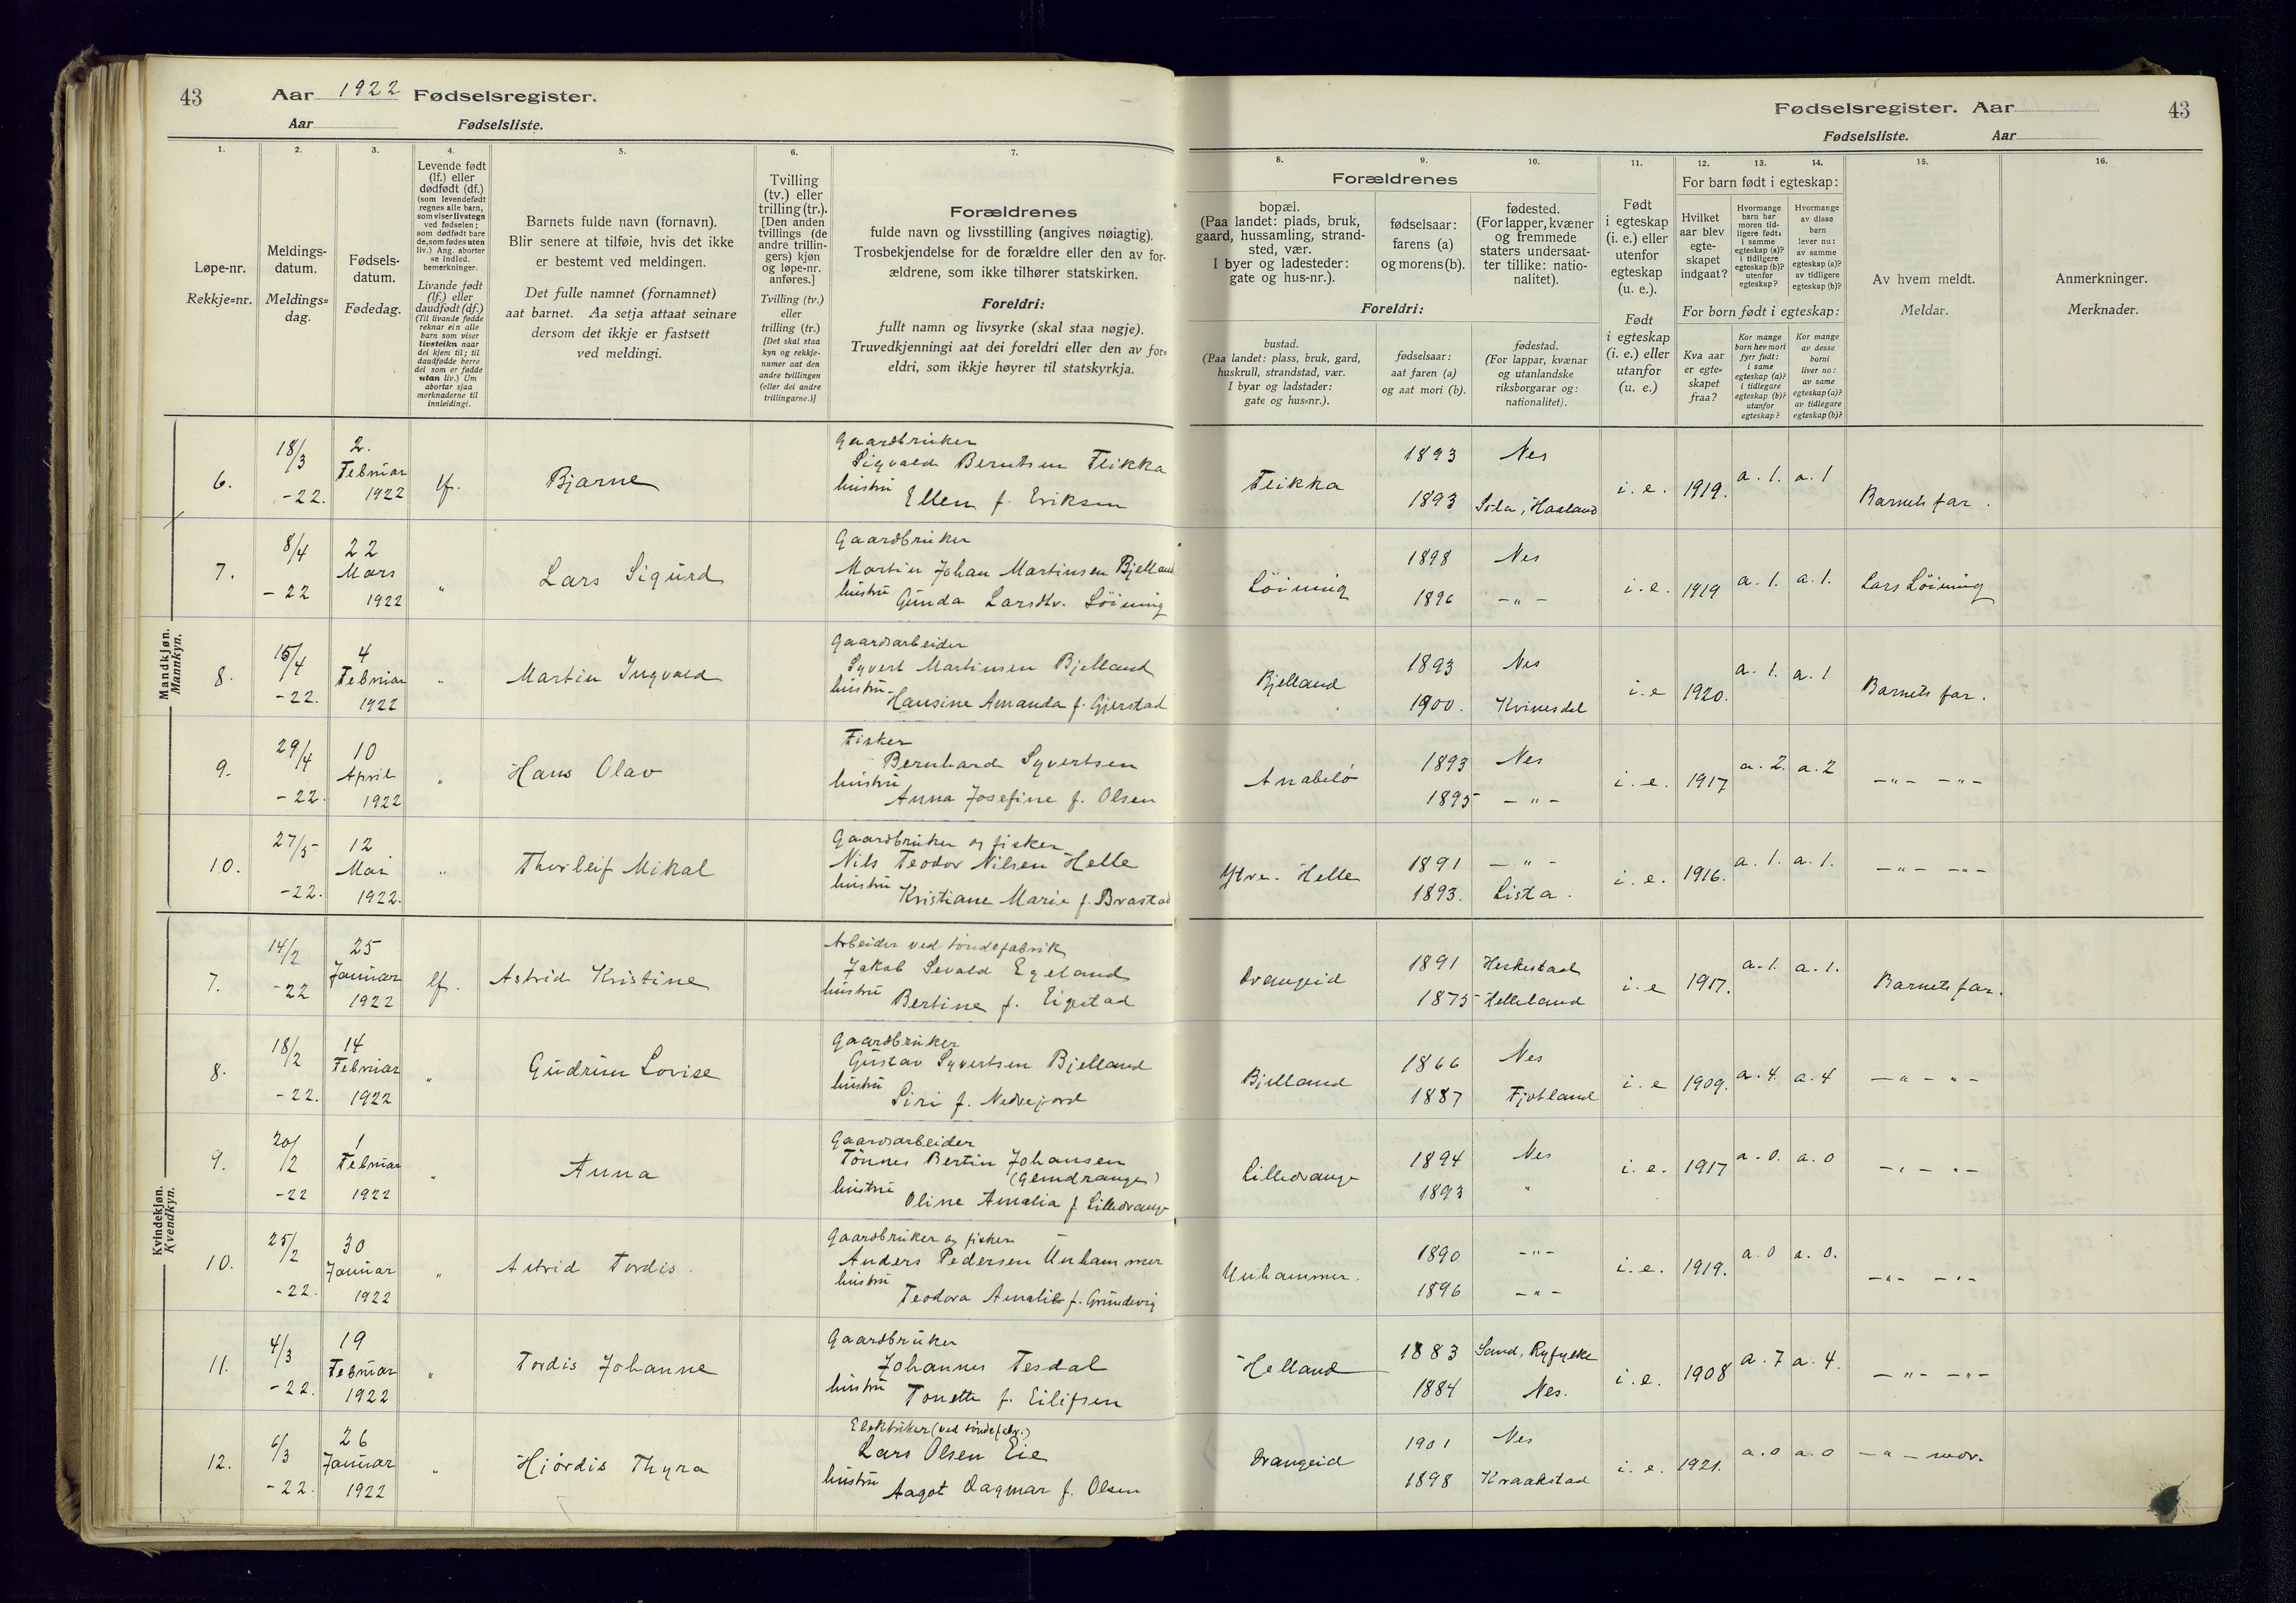 43 Aar 1922 Fødselsregister.
Aar Fødselsliste.
Fødselsregister. Aar 43
Fødselsliste. Aar
1. 2. 3. 4. 5. 6. 7. 8. 9. 10. 11. 12. 13. 14. 15. 16.
Løpe-nr.
Rekkje=nr.
Meldings-
datum.
Meldings=
dag.
Fødsels-
datum.
Fødedag.
Levende født
(lf.) eller
dødfødt (df.)
(som levendefødt
regnes alle barn,
som viser livstegn
ved fødselen;
som dødfødt bare
de, som fødes uten
liv.) Ang. aborter
se indled.
bemerkninger.
Livande født
(lf.) eller
daudfødt (df.)
(Til livande fødde
reknar ein alle
barn som viser
livsteikn naar
dei kjem til; til
daudfødde berre
dei som er fødde
utan liv.) Um
abortar sjaa
merknaderne til
innleidingi.
Barnets fulde navn (fornavn).
Blir senere at tilføie, hvis det ikke
er bestemt ved meldingen.
Det fulle namnet (fornamnet)
aat barnet. Aa setja attaat seinare
dersom det ikkje er fastsett
ved meldingi.
Tvilling
(tv.) eller
trilling (tr.).
[Den anden
tvillings (de
andre trillin-
gers) kjøn
og løpe-nr.
anføres.]
Tvilling (tv.)
eller
trilling (tr.)
[Det skal staa
kyn og rekkje-
numer aat den
andre tvillingen
(eller dei andre
trillingarne.)]
Forældrenes
fulde navn og livsstilling (angives nøiagtig).
Trosbekjendelse for de forældre eller den av for-
ældrene, som ikke tilhører statskirken.
Foreldri:
fullt namn og livsyrke (skal staa nøgje).
Truvedkjenningi aat dei foreldri eller den av for=
eldri, som ikkje høyrer til statskyrkja.
Forældrenes
bopæl.
(Paa landet: plads, bruk,
gaard, hussamling, strand-
sted, vær.
I byer og ladesteder:
gate og hus-nr.).
fødselsaar:
farens (a)
og morens (b).
fødested.
(For lapper, kvæner
og fremmede
staters undersaat-
ter tillike: natio-
nalitet).
Foreldri:
bustad.
(Paa landet: plass, bruk, gard,
huskrull, strandstad, vær.
I byar og ladstader:
gate og hus=nr.).
fødselsaar:
aat faren (a)
og aat mori (b).
fødestad.
(For lappar, kvænar
og utanlandske
riksborgarar og:
nationalitet).
Født
i egteskap
(i. e.) eller
utenfor
egteskap
(u. e.).
Født
i egteskap
(i. e.) eller
utanfor
(u. e.)
For barn født i egteskap:
Hvilket
aar blev
egte-
skapet
indgaat?
Hvormange
barn har
moren tid-
ligere født:
i samme
egteskap (a)?
i tidligere
egteskap (b)?
utenfor
egteskap?
Hvormange
av disse
barn
lever nu:
av samme
egteskap (a)?
av tidligere
egteskap (b)?
For born født i egteskap:
Kva aar
er egte=
skapet
fraa?
Kor mange
born hev mori
fyrr født:
i same
egteskap (a)?
i tidlegare
egteskap (b)?
utanfor
egteskap?
Kor mange
av desse
borni
liver no:
av same
egteskap (a)?
av tidlegare
egteskap (b)?
Av hvem meldt.
Meldar.
Anmerkninger.
Merknader.
Mandkjøn.
Mannkyn.
6. 18/3 -22. 2. Februar 1922 lf. Bjarne
Gaardbruker
Sigvald Berntsen Fleikka
hustru Ellen f. Eriksen
Fleikka 1893 Nes
1893 Sola, Haaland
i. e. 1919. a. 1. a. 1 Barnets far.
7. 8/4 -22 22 Mars 1922 " Lars Sigurd
Gaardbruker
Martin Johan Martinsen Bjelland
hustru Gunda Larsdtr. Löining
Löining 1898 Nes
1896 -"-
i. e. 1919 a. 1. a. 1. Lars Löining
8. 15/4 -22. 4 Februar 1922 " Martin Ingvald
Gaardsarbeider
Syvert Martinsen Bjelland
hustru Hansine Amanda f. Gjerstad
Bjelland 1893 Nes
1900. Kvinesdal
i. e 1920. a. 1. a. 1 Barnets far.
9. 29/4 -22. 10 April 1922 " Hans Olav
Fisker
Bernhard Syvertsen
hustru Anna Josefine f. Olsen
Anabelö 1893 Nes
1895 -"-
i. e. 1917 a. 2. a. 2 -"- -"-
10. 27/5 -22. 12 Mai 1922. " Thorleif Mikal
Gaardbruker og fisker
Nils Teodor Nilsen Helle
hustru Kristiane Marie f. Brastad
Ytre. Helle 1891 -"-
1893. Lista.
i. e. 1916. a. 1. a. 1. -"- -"-
Kvindekjøn.
Kvendkyn.
7. 14/2 -22 25 Januar 1922 lf. Astrid Kristine
Arbeider ved töndefabrik
Jakob Sevald Egeland
hustru Bertine f. Eigestad
Drangeid 1891 Heskestad
1875 Helleland
i. e 1917. a. 1. a. 1. Barnets far.
8. 18/2 -22. 14 Februar 1922 " Gudrun Lovise
Gaardbruker
Gustav Syvertsen Bjelland
hustru Siri f. Nedrejord
Bjelland 1866 Nes
1887 Fjotland
i. e 1909. a. 4. a. 4 -"- "-
9. 20/2 -22 1 Februar 1922 " Anna
Gaardsarbeider
Tönnes Bertin Johansen
(Glendrange)
hustru Oline Amalia f. Lilledrange
Lilledrange 1894 Nes
1893 "
i. e. 1917 a. 0. a. 0 -"- "-
10. 25/2 -22. 30 Januar 1922 " Astrid Tordis.
Gaardbruker og fisker
Anders Pedersen Unhammer
hustru Teodora Amalie f. Grundevig
Unhammer. 1890 -"-
1896 -"-
i. e. 1919. a. 0 a. 0. -"- -"-
11. 4/3 -22. 19 Februar 1922 " Tordis Johanne
Gaardbruker
Johannes Tesdal
hustru Tonette f. Eilifsen
Helland 1883 Sand, Ryfylke
1884 Nes.
i. e. 1908 a. 7 a. 4. -"- -"-
12. 6/3 -22. 26 Januar 1922 " Hjördis Thyra
Elektriker (ved töndefabr.)
Lars Olsen Eie
hustru Aagot Dagmar f. Olsen
Drangeid 1901 Nes
1898 Kraakstad
i. e. 1921. a. 0 a. 0 -"- mor.